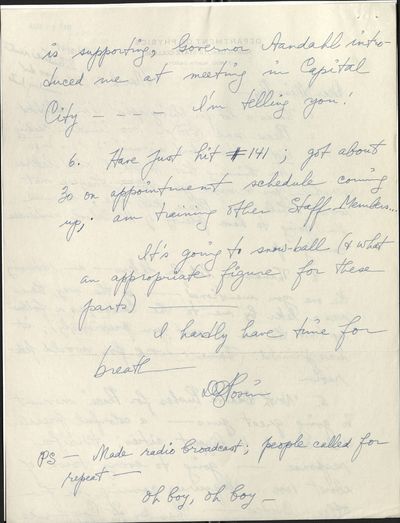 is supporting, Governor Aandahl intro-
duced me at meeting in Capital
City - - - - I'm telling you!
6. Have just hit #141; got about
30 on appointment schedule coming
up; am training other Staff Members...
It's going to snow-ball (& what
an appropriate figure for these
parts)
I hardly have time for
breath
DQPosin
PS - Made radio broadcast; people called for
repeat -
Oh boy, oh boy -